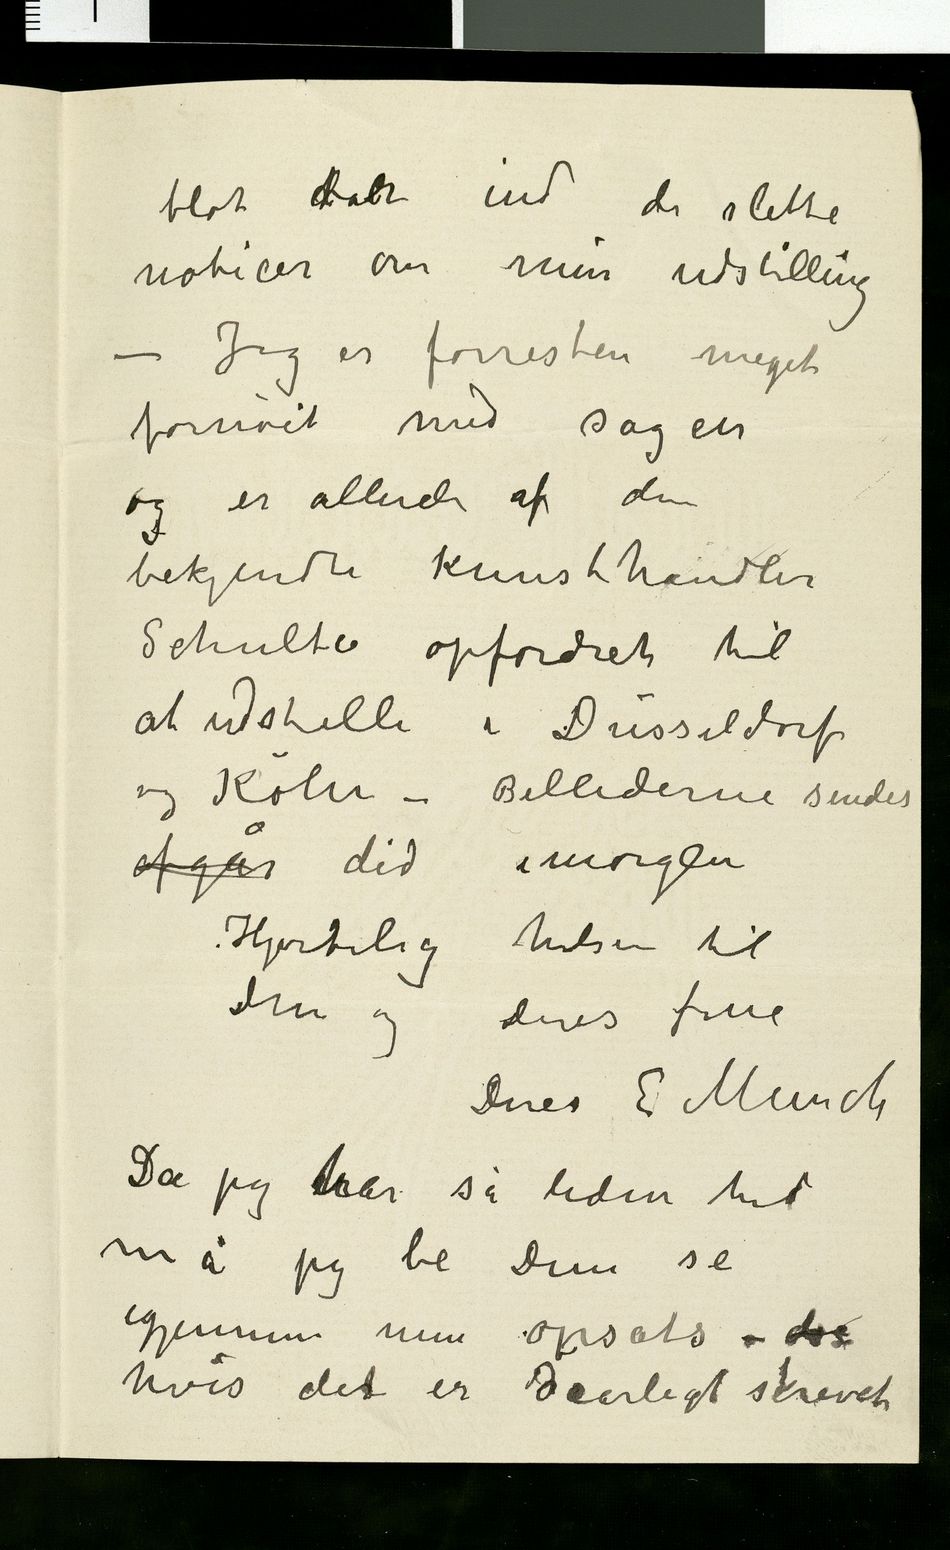 blot tat ind de slette
noticer om min udstilling
— Jeg er forresten meget
fornöit med sagen
og er allerede af den
bekjendte Kunsthandler
Schulte opfordret til
at udstille i Düsseldorf
og Köln – Billederne sendes
afgår did imorgen
Hjertelig hilsen til
Dem og Deres frue
Deres E Munch
Da jeg har så liden tid
må jeg be Dem se
igjennem min opsats –
hvis det er daarligt skrevet